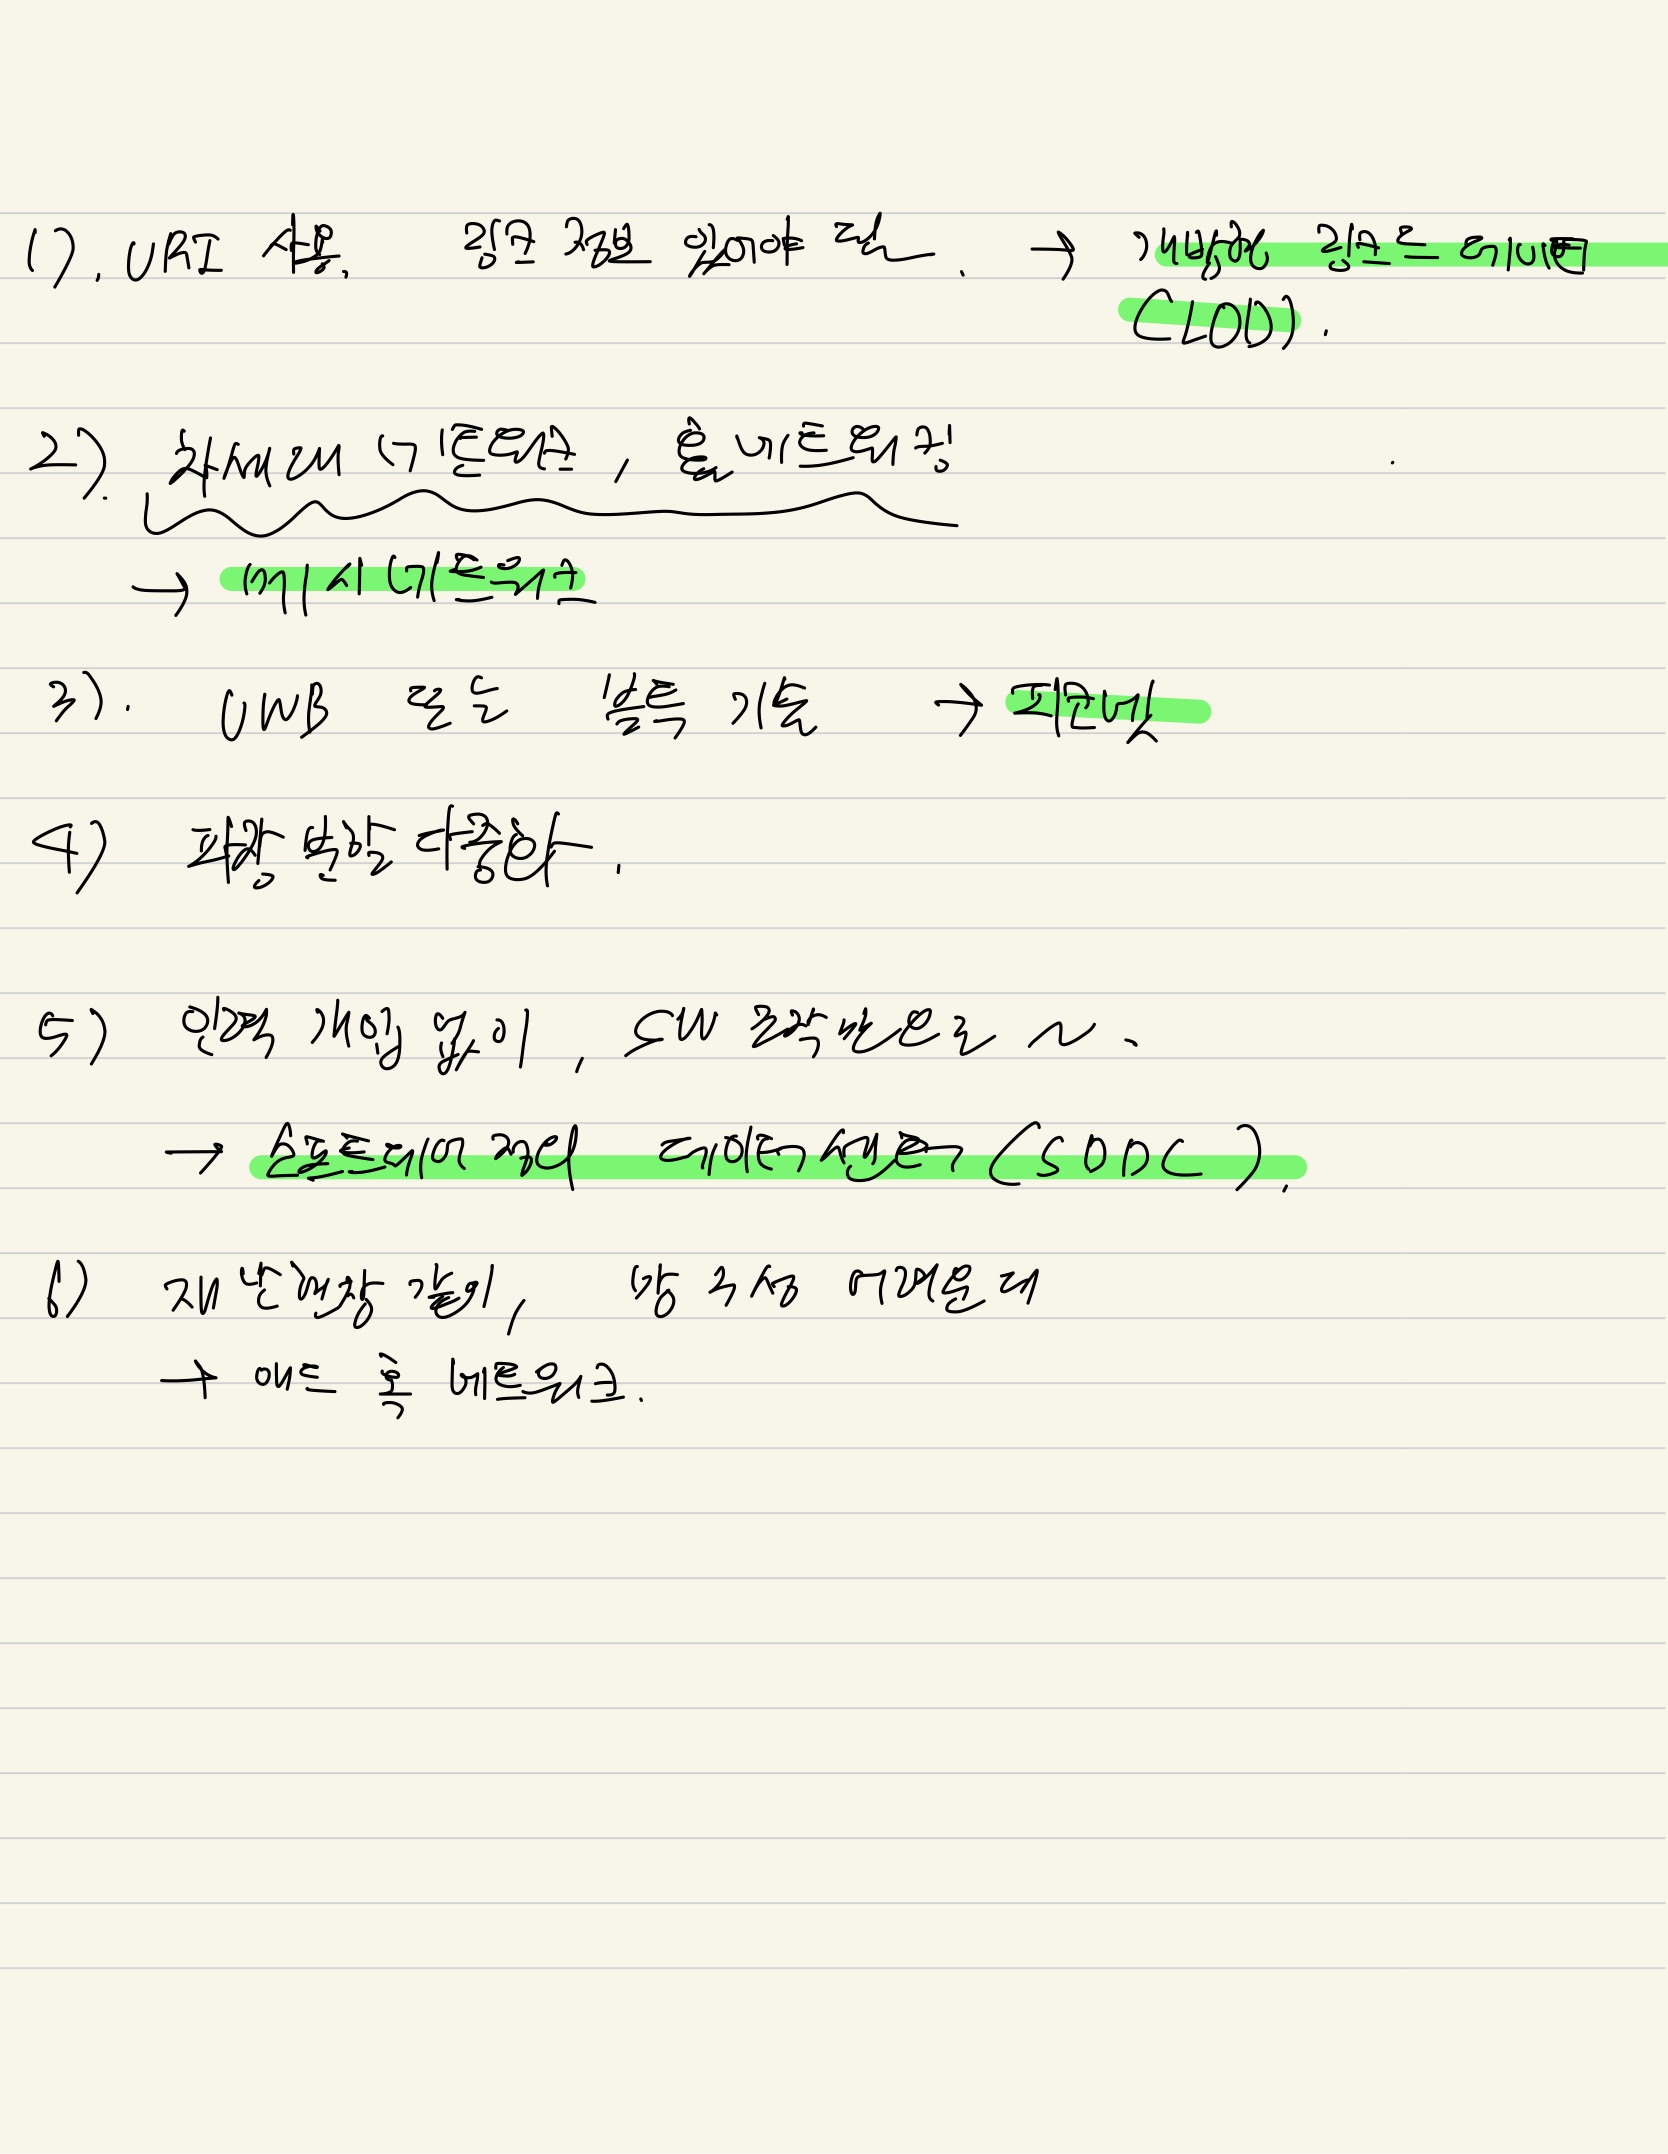 1). URI 사용. 링크 정보 있어야 됨. → 개방형 링크드 데이터
(LOD).
2). 차세대 네트워크, 홈 네트워킹
→ 메시 네트워크
3). UWB 또는 블특 기술 → 피코넷
4) 파장 분할 다중화.
5) 인력 개입 없이, SW 조작만으로 ~.
→ 소프트웨어 정의 데이터 센터 (SDDC).
6) 재난현장 같이, 망 구성 어려운데
→ 애드 혹 네트워크.